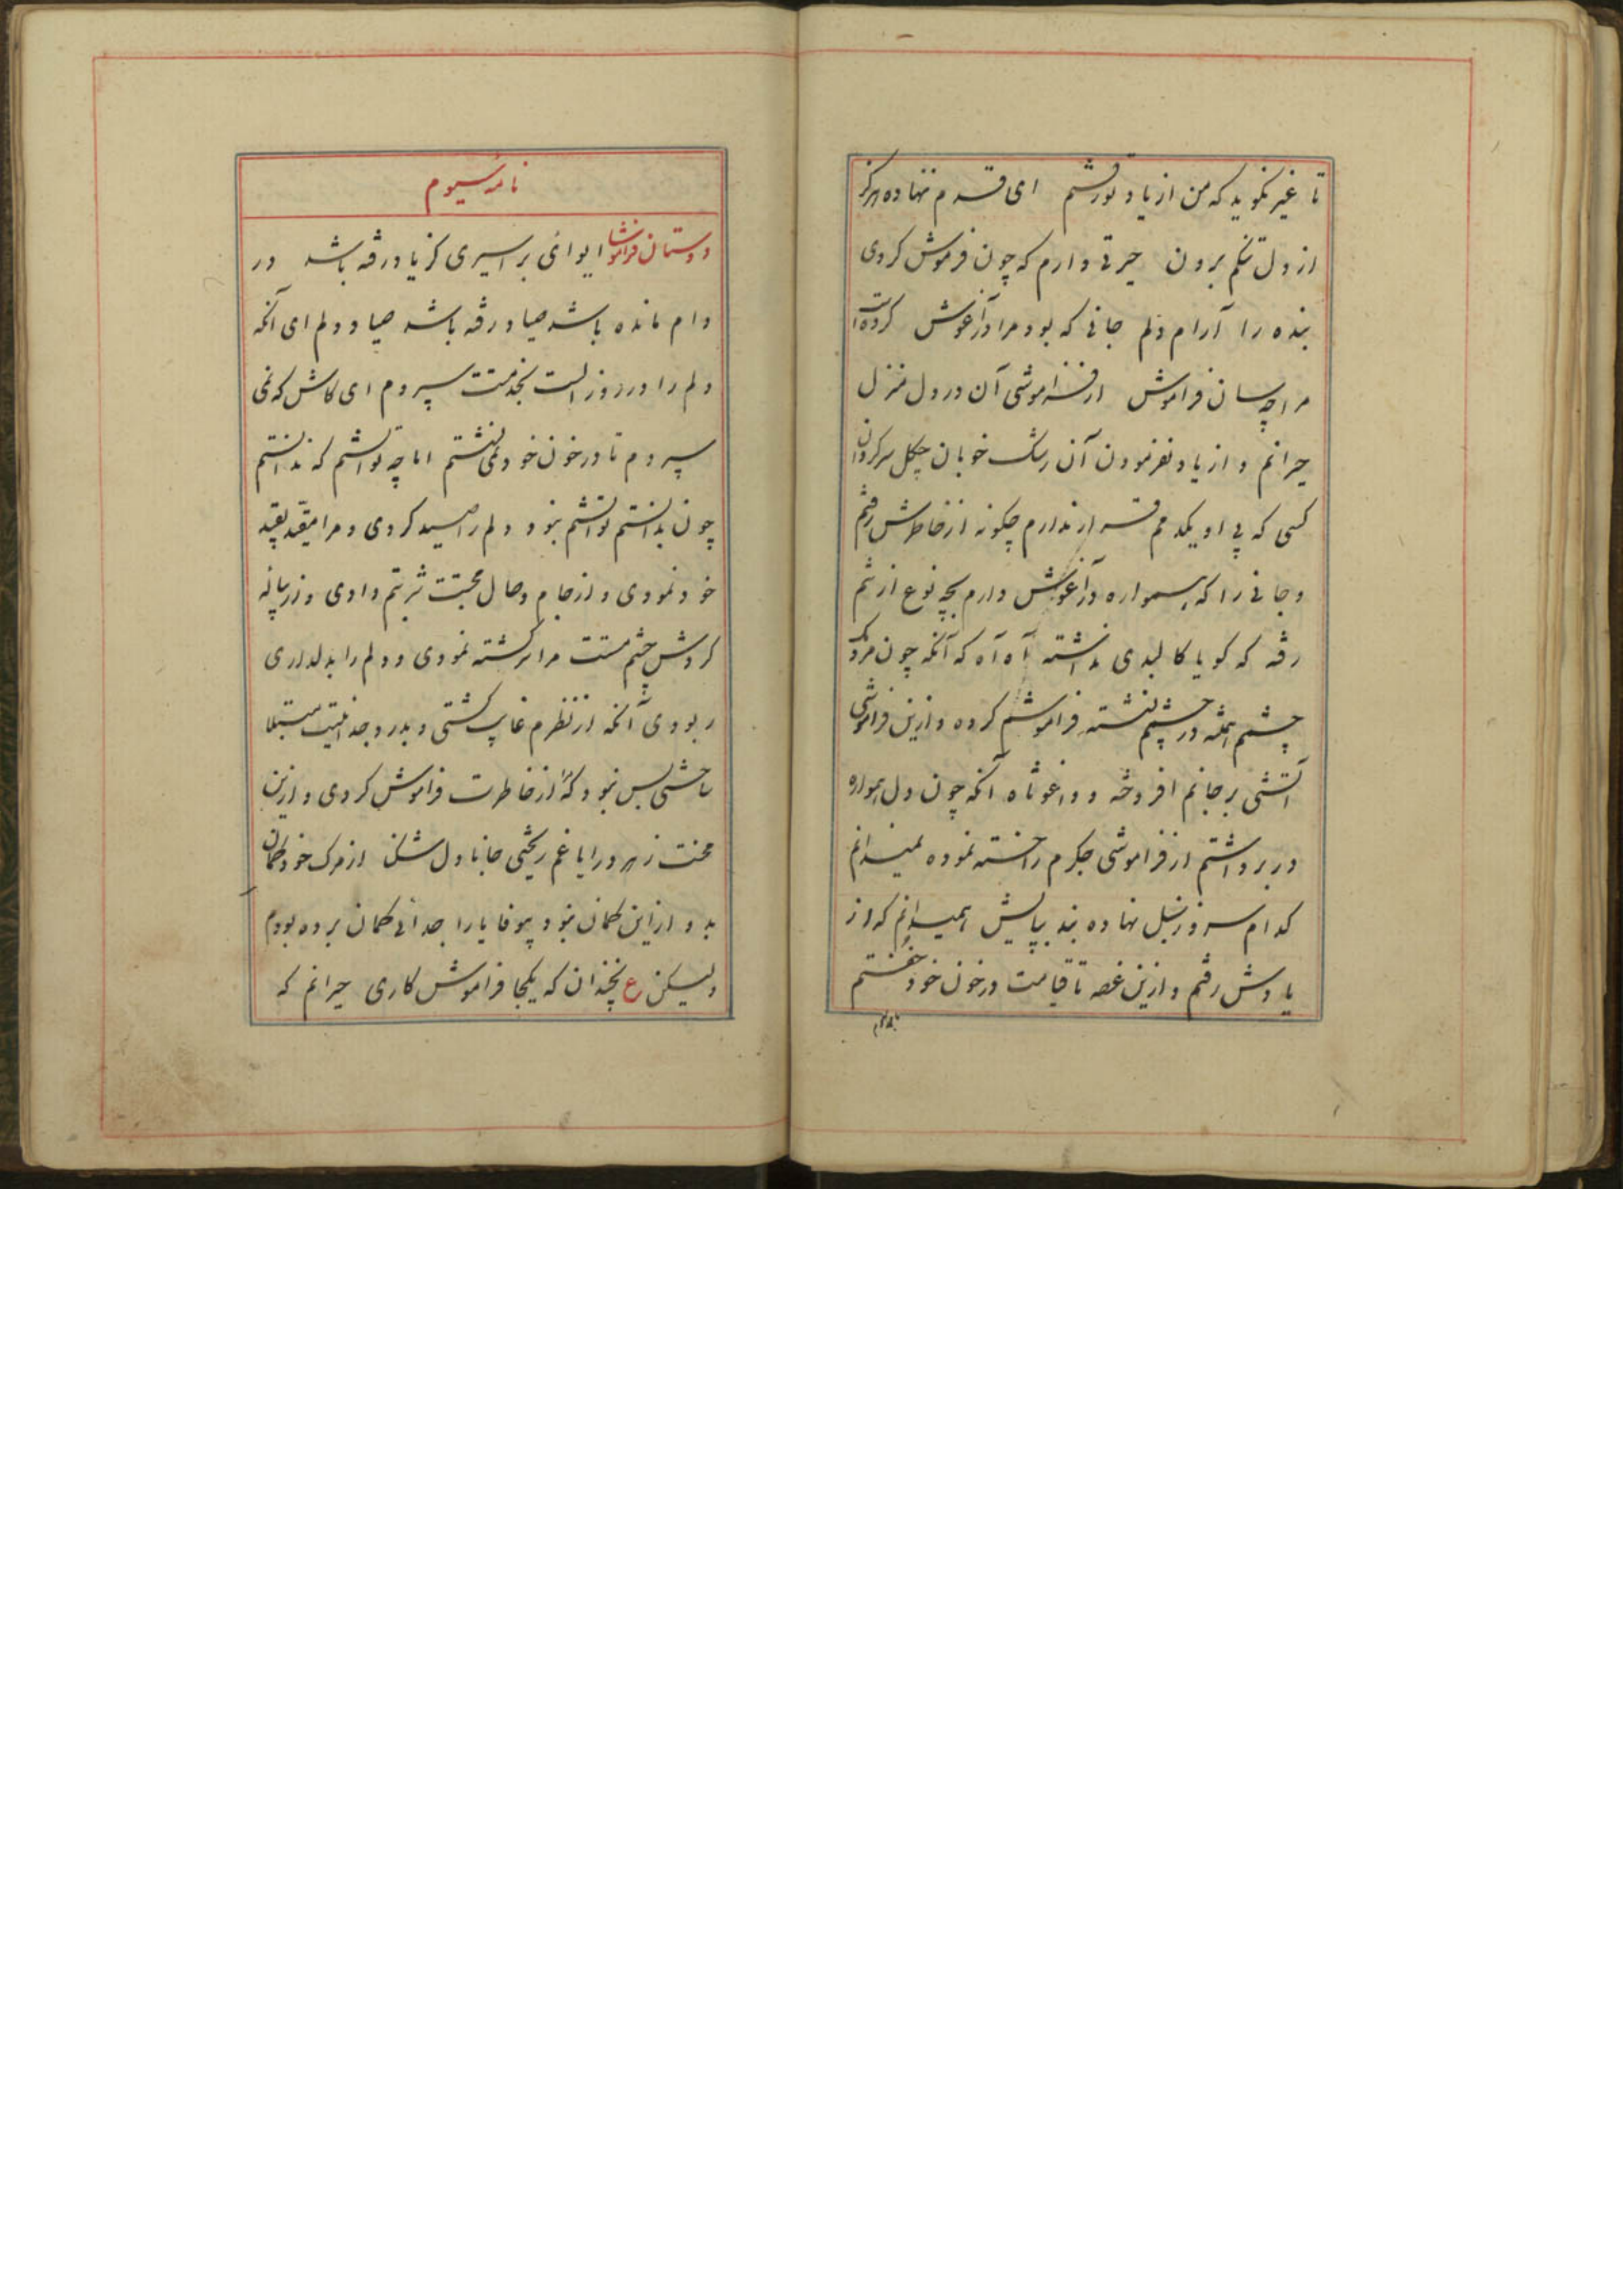 تا غیر نگوید که من از یاد تو رفتم ای قدم ننهاده هرگز
از دل تنگم برون حیرتی دارم که چون فرموش کردی
بنده را آرام دلم جانی که بود مرا در آغوش کرده است
مرا چسان فراموش از فراموشی آن در دل منزل
حیرانم و از یاد نفرمودن آن رشک خوبان چگل سرگردان
کسی که پی او یکدمم قرار ندارم چگونه از خاطرش رفتم
و جانی را که همواره در آغوش دارم بچه نوع ازشم
رفته که گویا کالبدی نداشته آه آه که آنکه چون مردمک
چشم همیشه در چشمم نشسته فراموشم کرده و ازین فراموشی
آتشی بر جانم افروخته و وا غوثاه آنکه چون دل همواره
در برداشتم از فراموشی جگرم را خسته نموده نمیدانم
کدام سر و زنبل نهاده بند بپایش همیدانم که از
یادش رفتم و ازین غصه تا قیامت در خون خود خفتم
نامه سیوم
دوستان فراموشا ای وای بر اسیری کز یاد رفته باشد در
دام مانده باشد صیاد رفته باشد صیاد دلم ای آنکه
دلم را در روز الست بخدمتت سپردم ای کاش که نمی
سپردم تا در خون خود نمی نشستم اما چه توانستم که ندانستم
چون بدانستم توانستم نبود دلم را صید کردی و مرا مقید بقید
خود نمودی و از جام وصال محبتت شربتم دادی و زریانه
گردش چشم مستت مرا سرگشته نمودی و دلم را بدلداری
ربودی آنکه از نظرم غایب گشتی و بدرد جدائیت مبتلا
ساختی بس نبود که از خاطرت فراموش کردی و ازین
محنت زهر در ایاغم ریختی جانا دل شکن از مرگ خود گمان
بد و از این گمان نبود بیوفا یارا جدائی گمان برده بودم
ولیکن ع نچندان که یکجا فراموش کاری حیرانم که